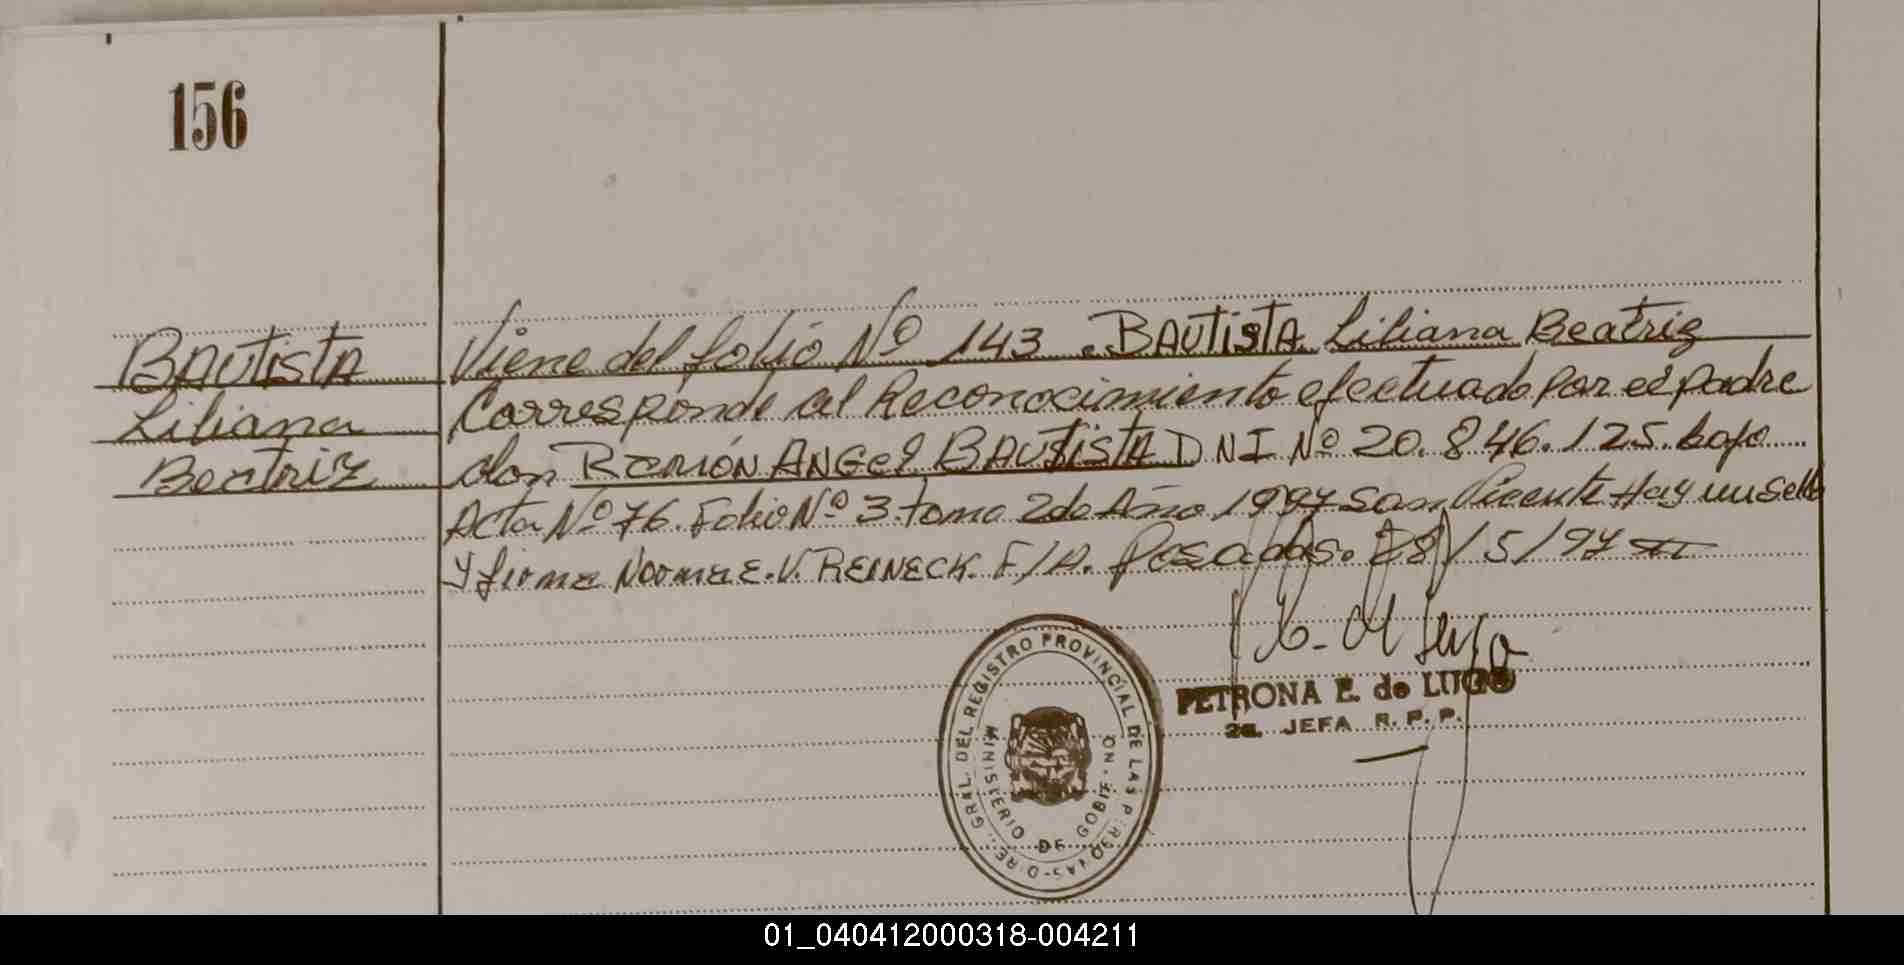 156
BAUtistA
Liliana
Beatriz
Viene del folio Nº 143. BAUTISTA Liliana Beatriz
Corresponde al Reconocimiento efectuado por el padre
don RAMÓN ANGel BAUTISTA D N I Nº 20.846.125. bajo
Acta Nº 76. Folio Nº 3. tomo 2do Año 1997 San Vicente Hay un sello
Y firma Norma E. V. REINECK. F/A. Posadas. 28/5/97
DIRE. GRAL. DEL REGISTRO PROVINCIAL DE LAS PERSONAS
MINISTERIO DE GOBIERNO
PETRONA E. de LUGO
2a. JEFA R. P. P.
01_040412000318-004211